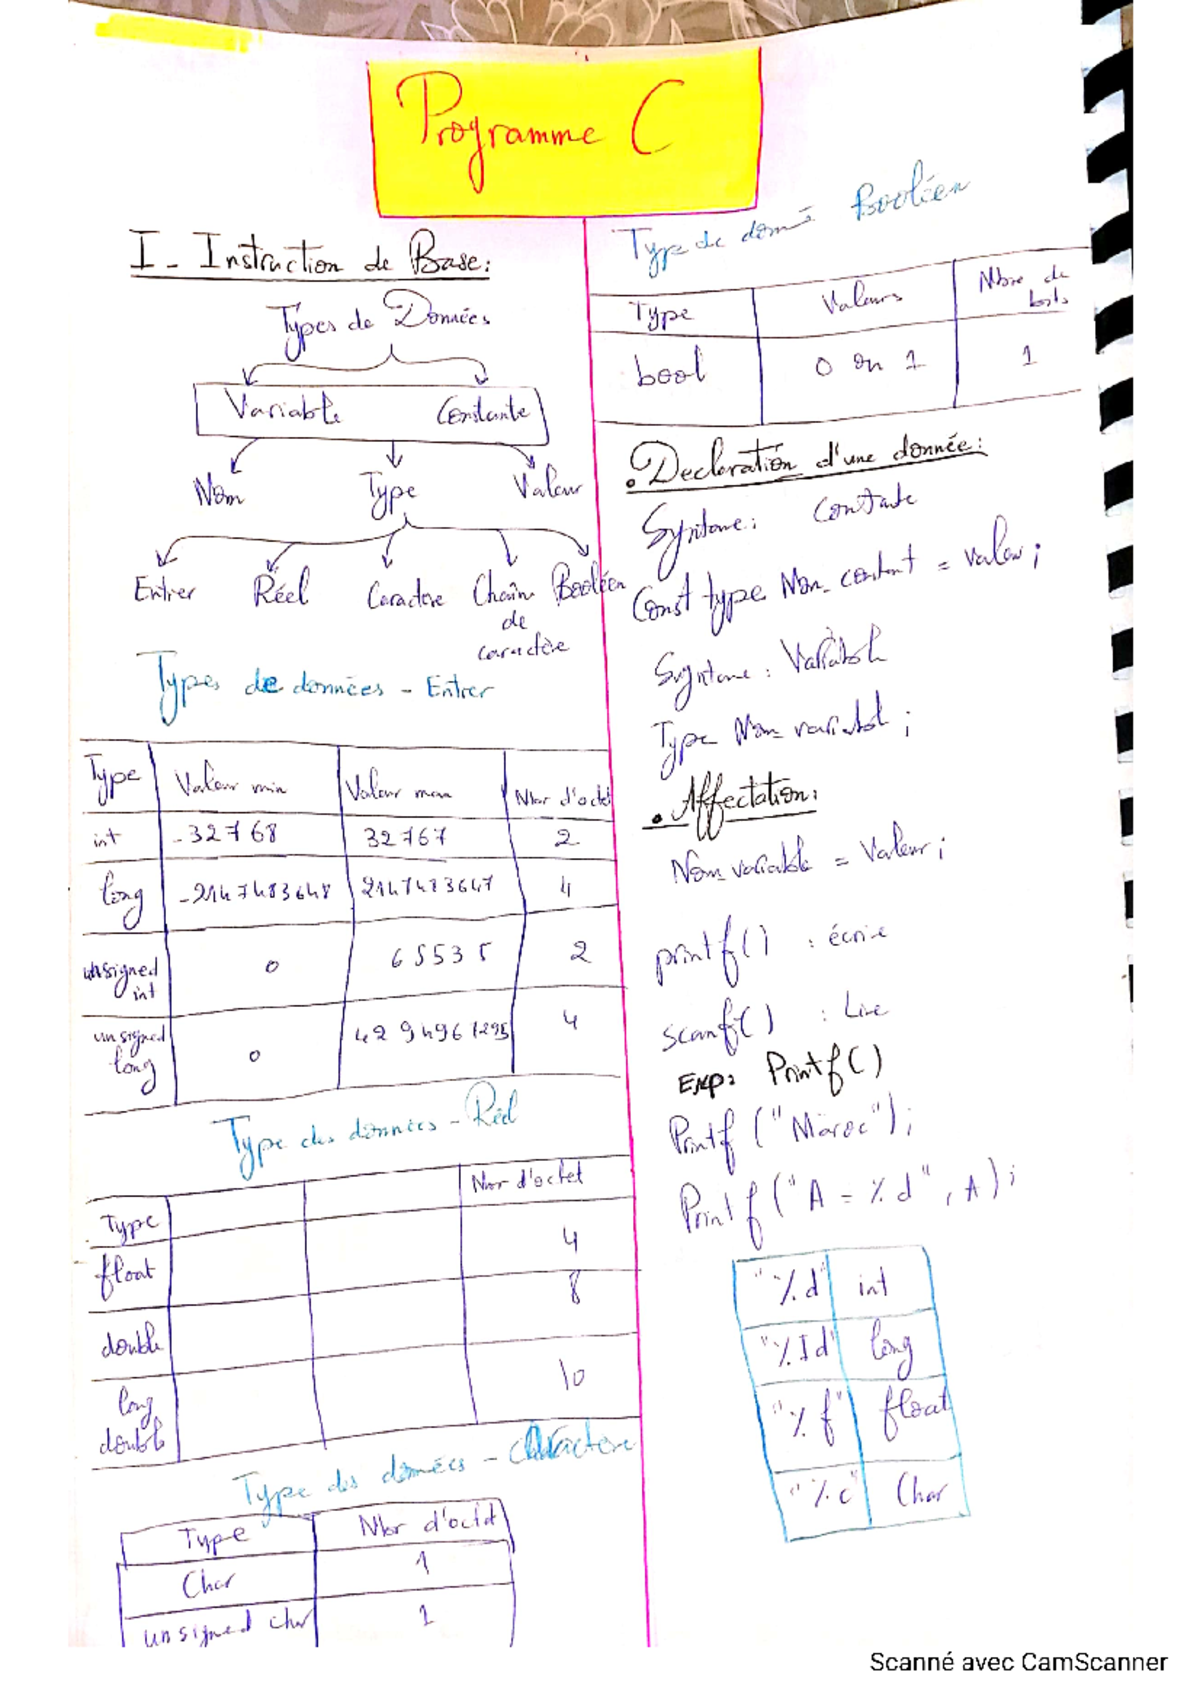 Programme C
I - Instruction de Base:
Types de Données
Variable Constante
Nom Type Valeur
Entrer Réel Caractere Chaîn Booléen
de
caractère
Types de données - Entrer
Type Valeur min Valeur max Nbr d'octet
int -32768 32767 2
long -2147483648 2147483647 4
unsigned int 0 65535 2
unsigned long 0 4294967295 4
Type des données - Réel
Type Nbr d'octet
float 4
double 8
long double 10
Type des données - Caractere
Type Nbr d'octet
Char 1
unsigned char 1
Type de donné Booléen
Type Valeurs Nbre de bits
bool 0 ou 1 1
. Declaration d'une donnée:
Syntaxe: Constante
Const type Nom_constant = valeur;
Syntaxe: Variable
Type Nom_variable;
. Affectation:
Nom_variable = Valeur;
printf() : écrire
scanf() : Lire
Exp: Printf()
Printf ("Maroc");
Printf ("A = %d", A);
"%d" int
"%Id" long
"%f" float
"%c" Char
Scanné avec CamScanner